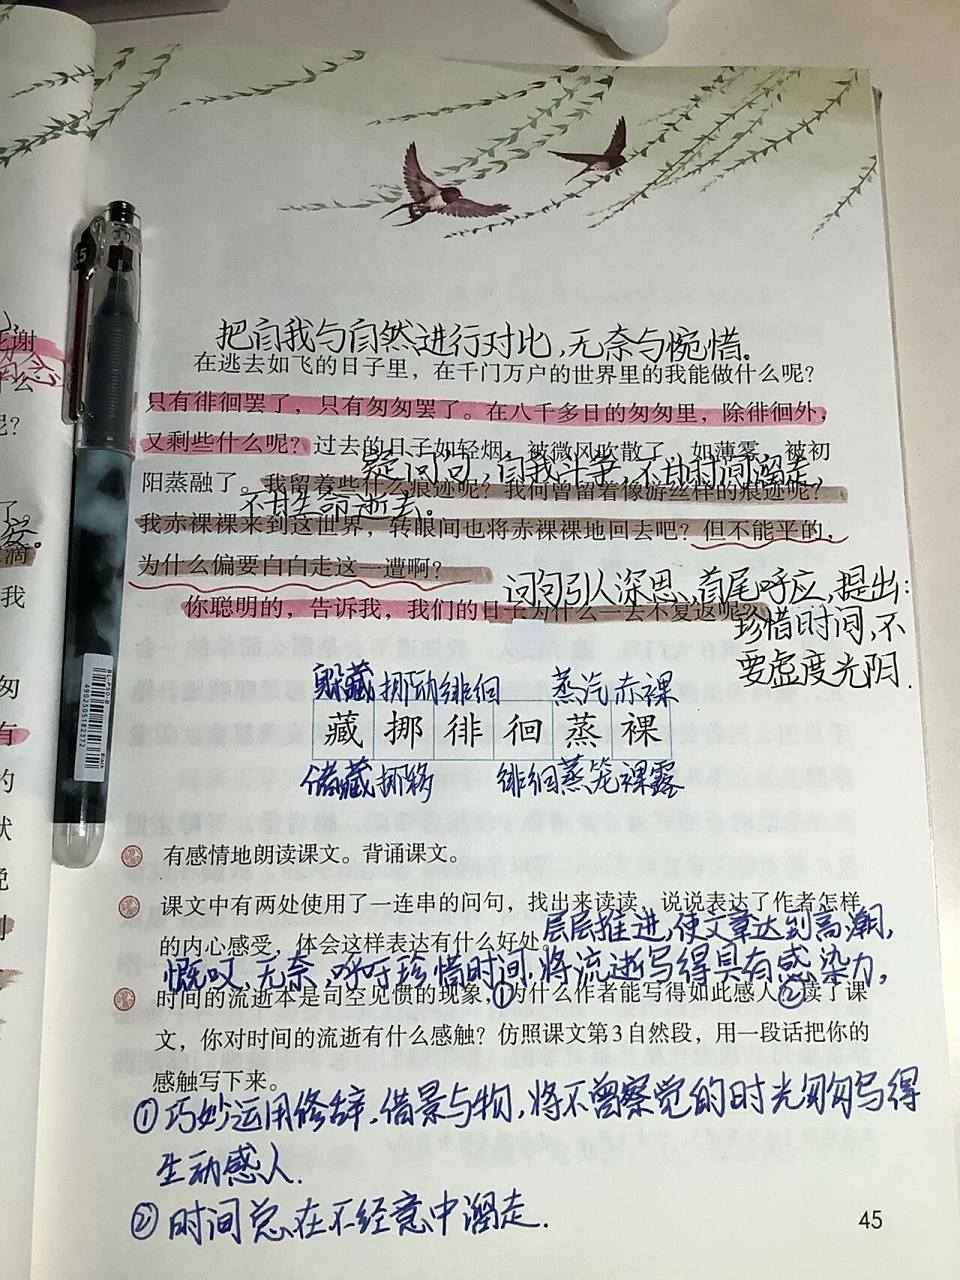 把自我与自然进行对比,无奈与惋惜。
在逃去如飞的日子里，在千门万户的世界里的我能做什么呢？
只有徘徊罢了，只有匆匆罢了。在八千多日的匆匆里，除徘徊外，
又剩些什么呢？过去的日子如轻烟，被微风吹散了，如薄雾，被初
疑问句,自我斗争,不甘时间溜走,
阳蒸融了。我留着些什么痕迹呢？我何曾留着像游丝样的痕迹呢？
不甘生命逝去。
我赤裸裸来到这世界，转眼间也将赤裸裸地回去吧？但不能平的，
为什么偏要白白走这一遭啊？
问句引人深思,首尾呼应,提出:
你聪明的，告诉我，我们的日子为什么一去不复返呢？
珍惜时间,不
要虚度光阴.
躲藏 挪动 徘徊 蒸汽 赤裸
藏 挪 徘 徊 蒸 裸
储藏 挪移 徘徊 蒸笼 裸露
有感情地朗读课文。背诵课文。
课文中有两处使用了一连串的问句，找出来读读，说说表达了作者怎样
的内心感受，体会这样表达有什么好处。层层推进,使文章达到高潮,
慨叹、无奈,呼吁珍惜时间,将流逝写得具有感染力,
时间的流逝本是司空见惯的现象，①为什么作者能写得如此感人②读了课
文，你对时间的流逝有什么感触？仿照课文第3自然段，用一段话把你的
感触写下来。
①巧妙运用修辞,借景与物,将不曾察觉的时光匆匆写得
生动感人.
②时间总在不经意中溜走.
45